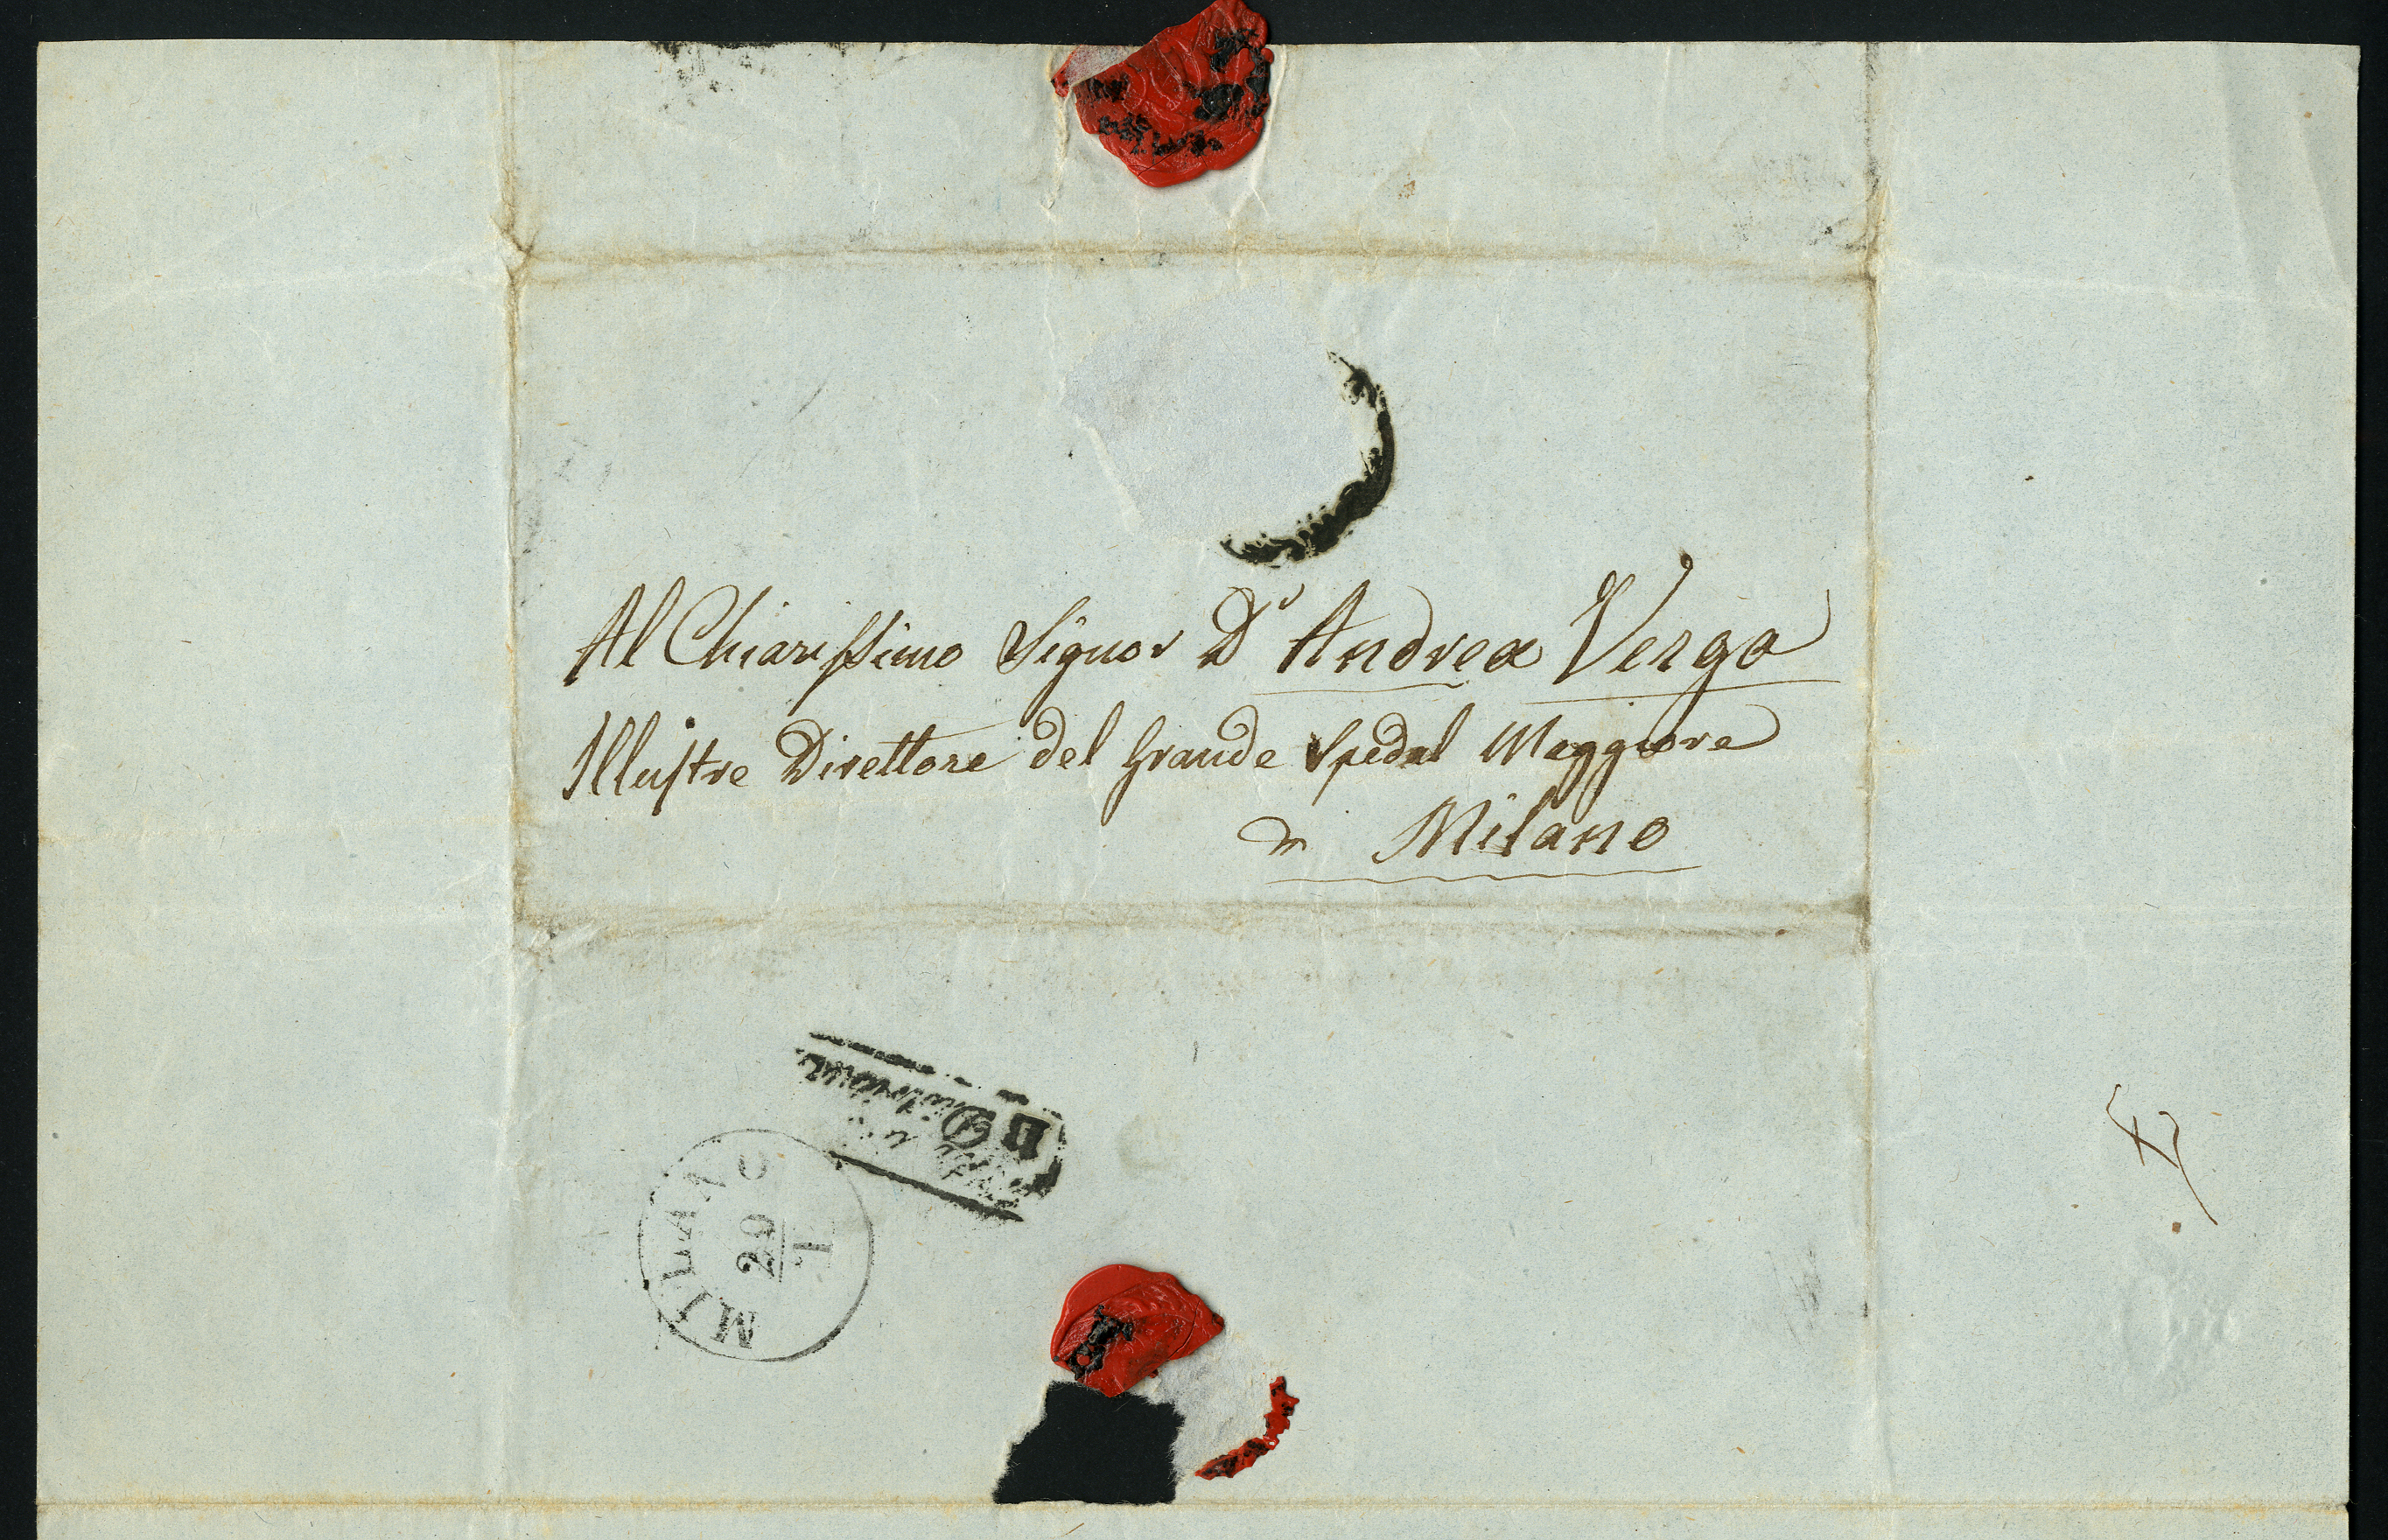 Al Chiarissimo Signor Dr Andrea Verga
Illustre Direttore del Grande Spedal Maggiore
in Milano
Distribuz.
MILANO
29
1